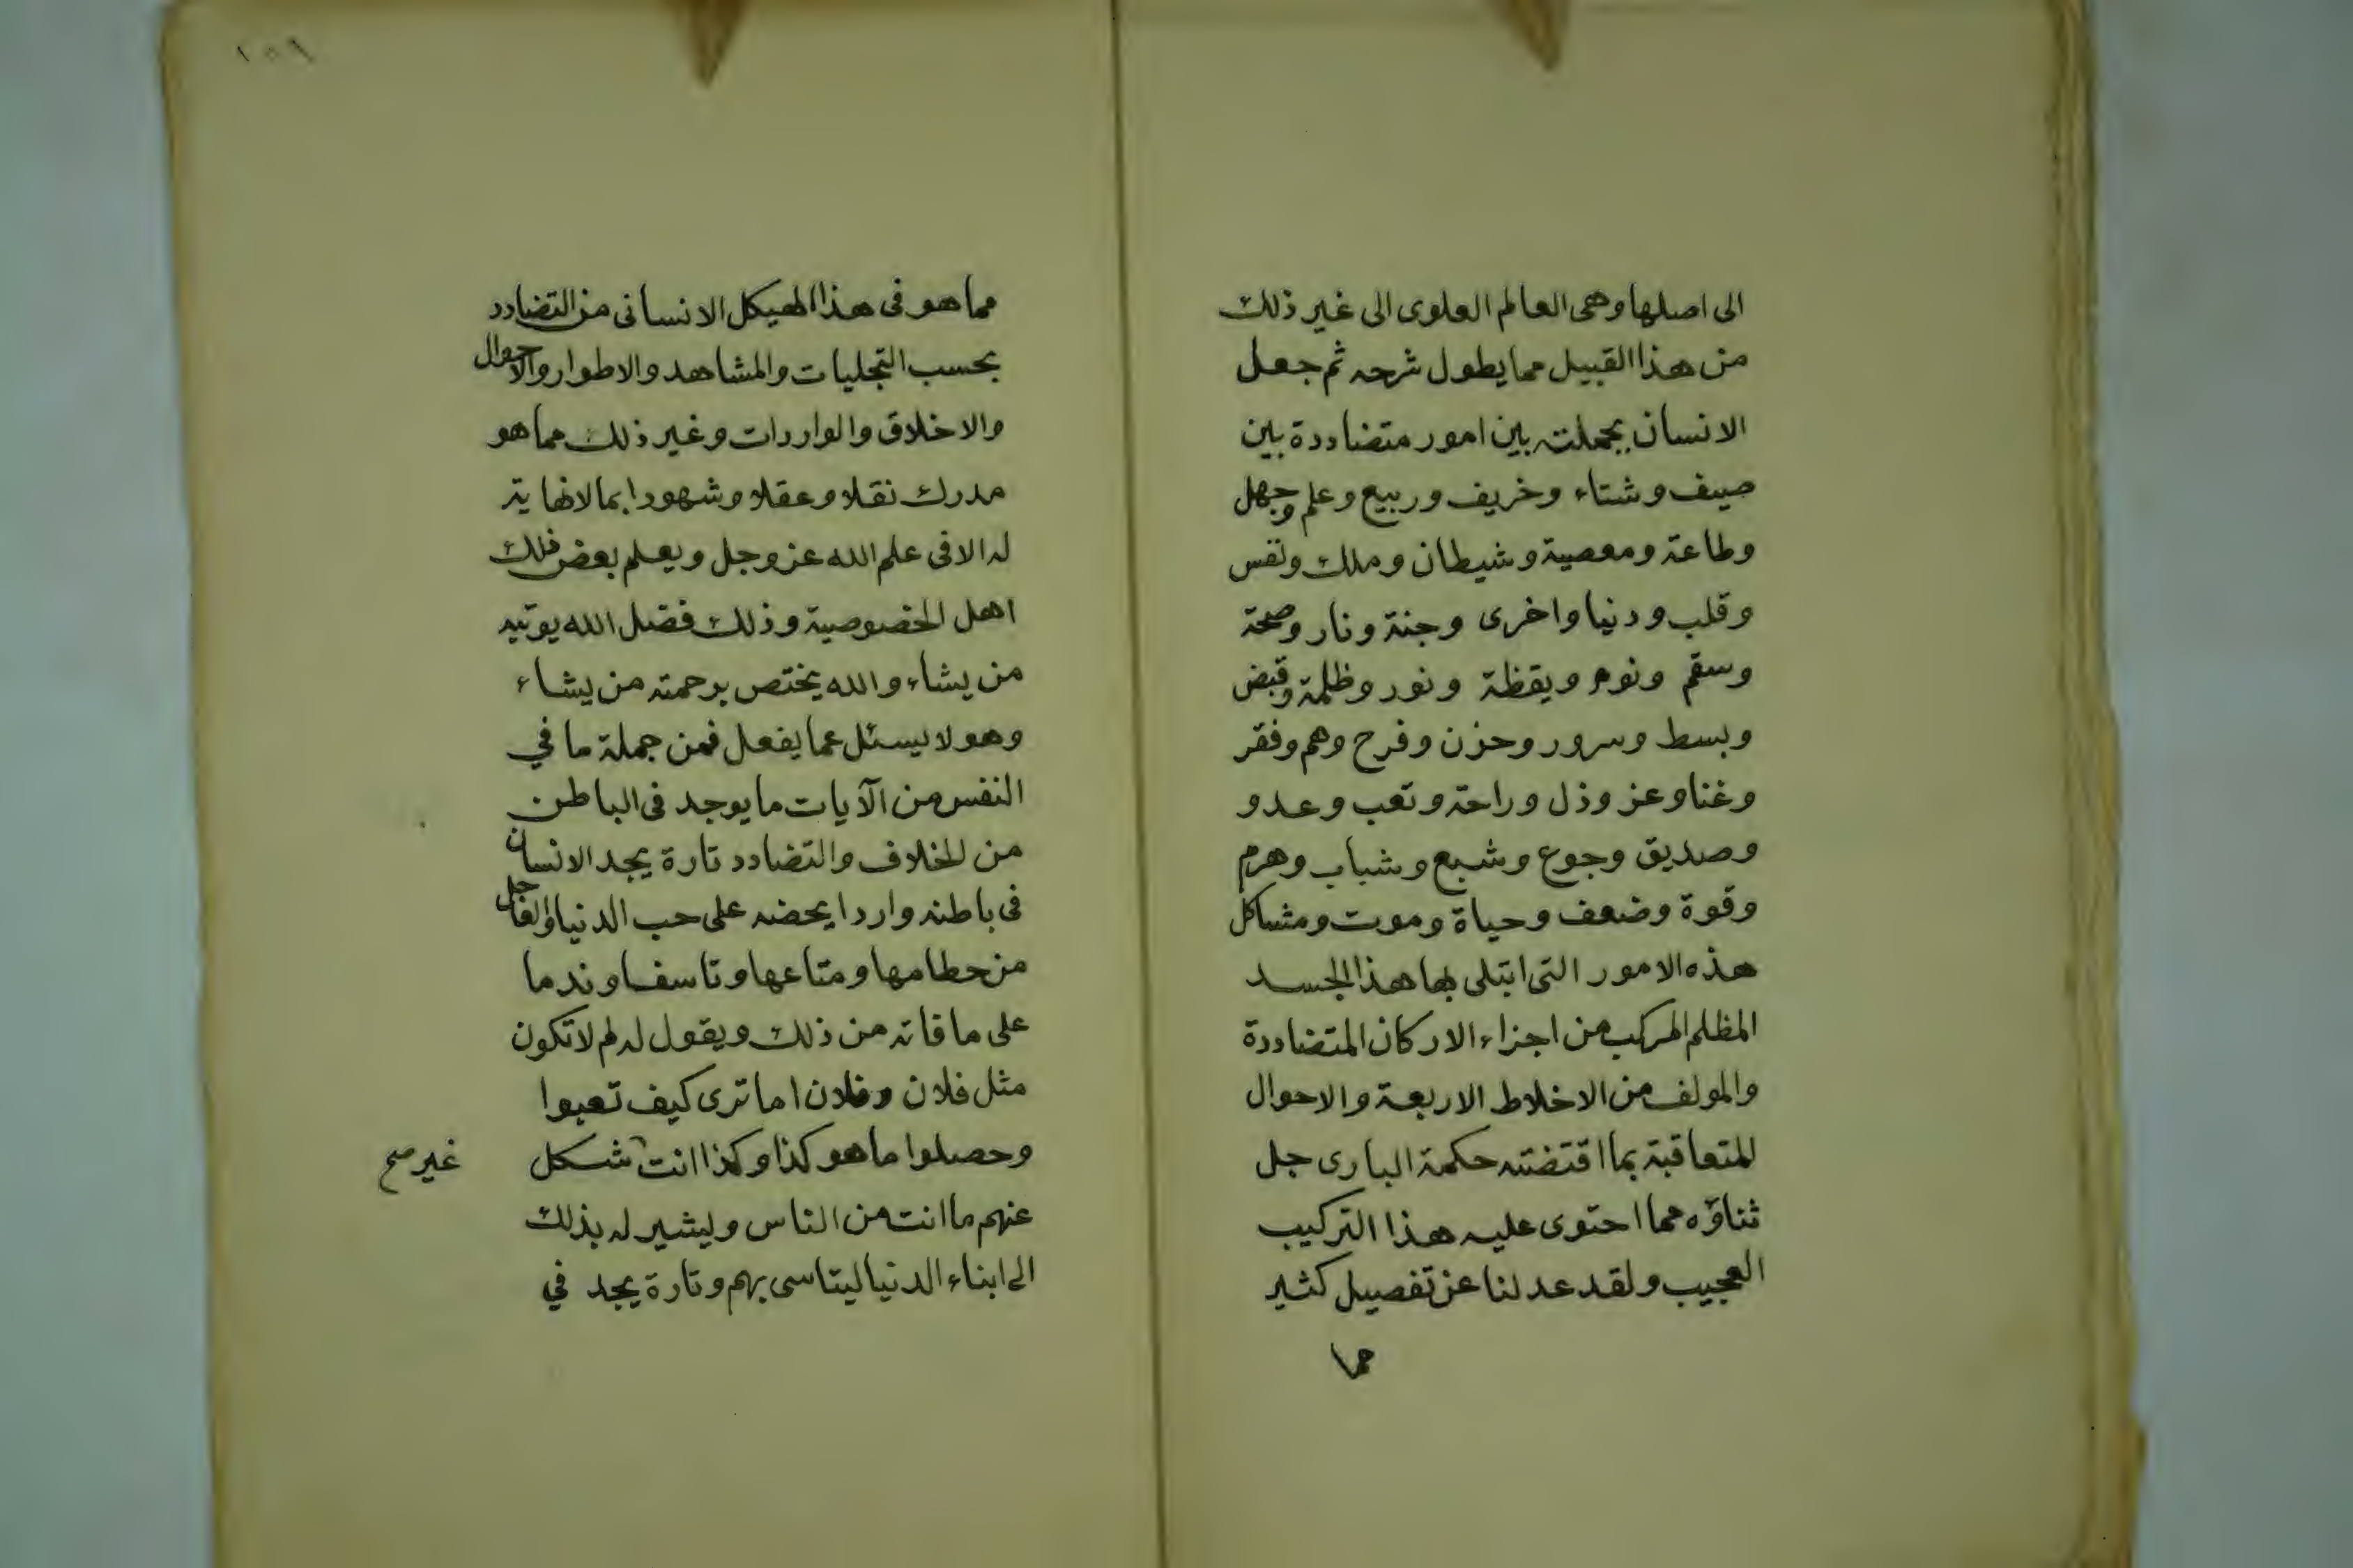 الى اصلها وهى العالم العلوى الى غير ذلك
من هذا القبيل مما يطول شرحه ثم جعل
الانسان بجملته بين امور متضاددة بين
صيف وشتاء وخريف وربيع وعلم وجهل
وطاعة ومعصية وشيطان وملك ونفس
وقلب ودنيا واخرى وجنة ونار وصحة
وسقم ونوم ويقظة ونور وظلمة وقبض
وبسط وسرور وحزن وفرح وهم وفقر
وغنا وعز وذل وراحة وتعب وعدو
وصديق وجوع وشبع وشباب وهرم
وقوة وضعف وحياة وموت ومشاكل
هذه الامور التى ابتلى بها هذا الجسد
المظلم المركب من اجزاء الاركان المتضاددة
والمولف من الاخلاط الاربعة والاحوال
المتعاقبة بما اقتضته حكمة البارى جل
ثناؤه مما احتوى عليه هذا التركيب
العجيب ولقد عدلنا عن تفصيل كثير
مما
١٥٩
مما هو فى هذا الهيكل الانسانى من التضادد
بحسب التجليات والمشاهد والاطوار والاحوال
والاخلاق والواردات وغير ذلك مما هو
مدرك نقلا وعقلا وشهودا بما لانهاية
له الا فى علم الله عز وجل ويعلم بعض ذلك
اهل الخصوصية وذلك فضل الله يوتيه
من يشاء والله يختص برحمته من يشاء
وهو لا يسئل عما يفعل فمن جملة ما في
النفس من الآيات ما يوجد فى الباطن
من الخلاف والتضادد تارة يجد الانسان
فى باطنه واردا يحضه على حب الدنيا والعاجل
من حطامها ومتاعها وتاسفا وندما
على ما فاته من ذلك ويقول له لم لا تكون
مثل فلان وفلان اما ترى كيف تعبوا
وحصلوا ما هو كذا وكذا انت شكل
غير صح
عنهم ما انت من الناس وليشير له بذلك
الى ابناء الدنيا ليتاسى بهم وتارة يجد في